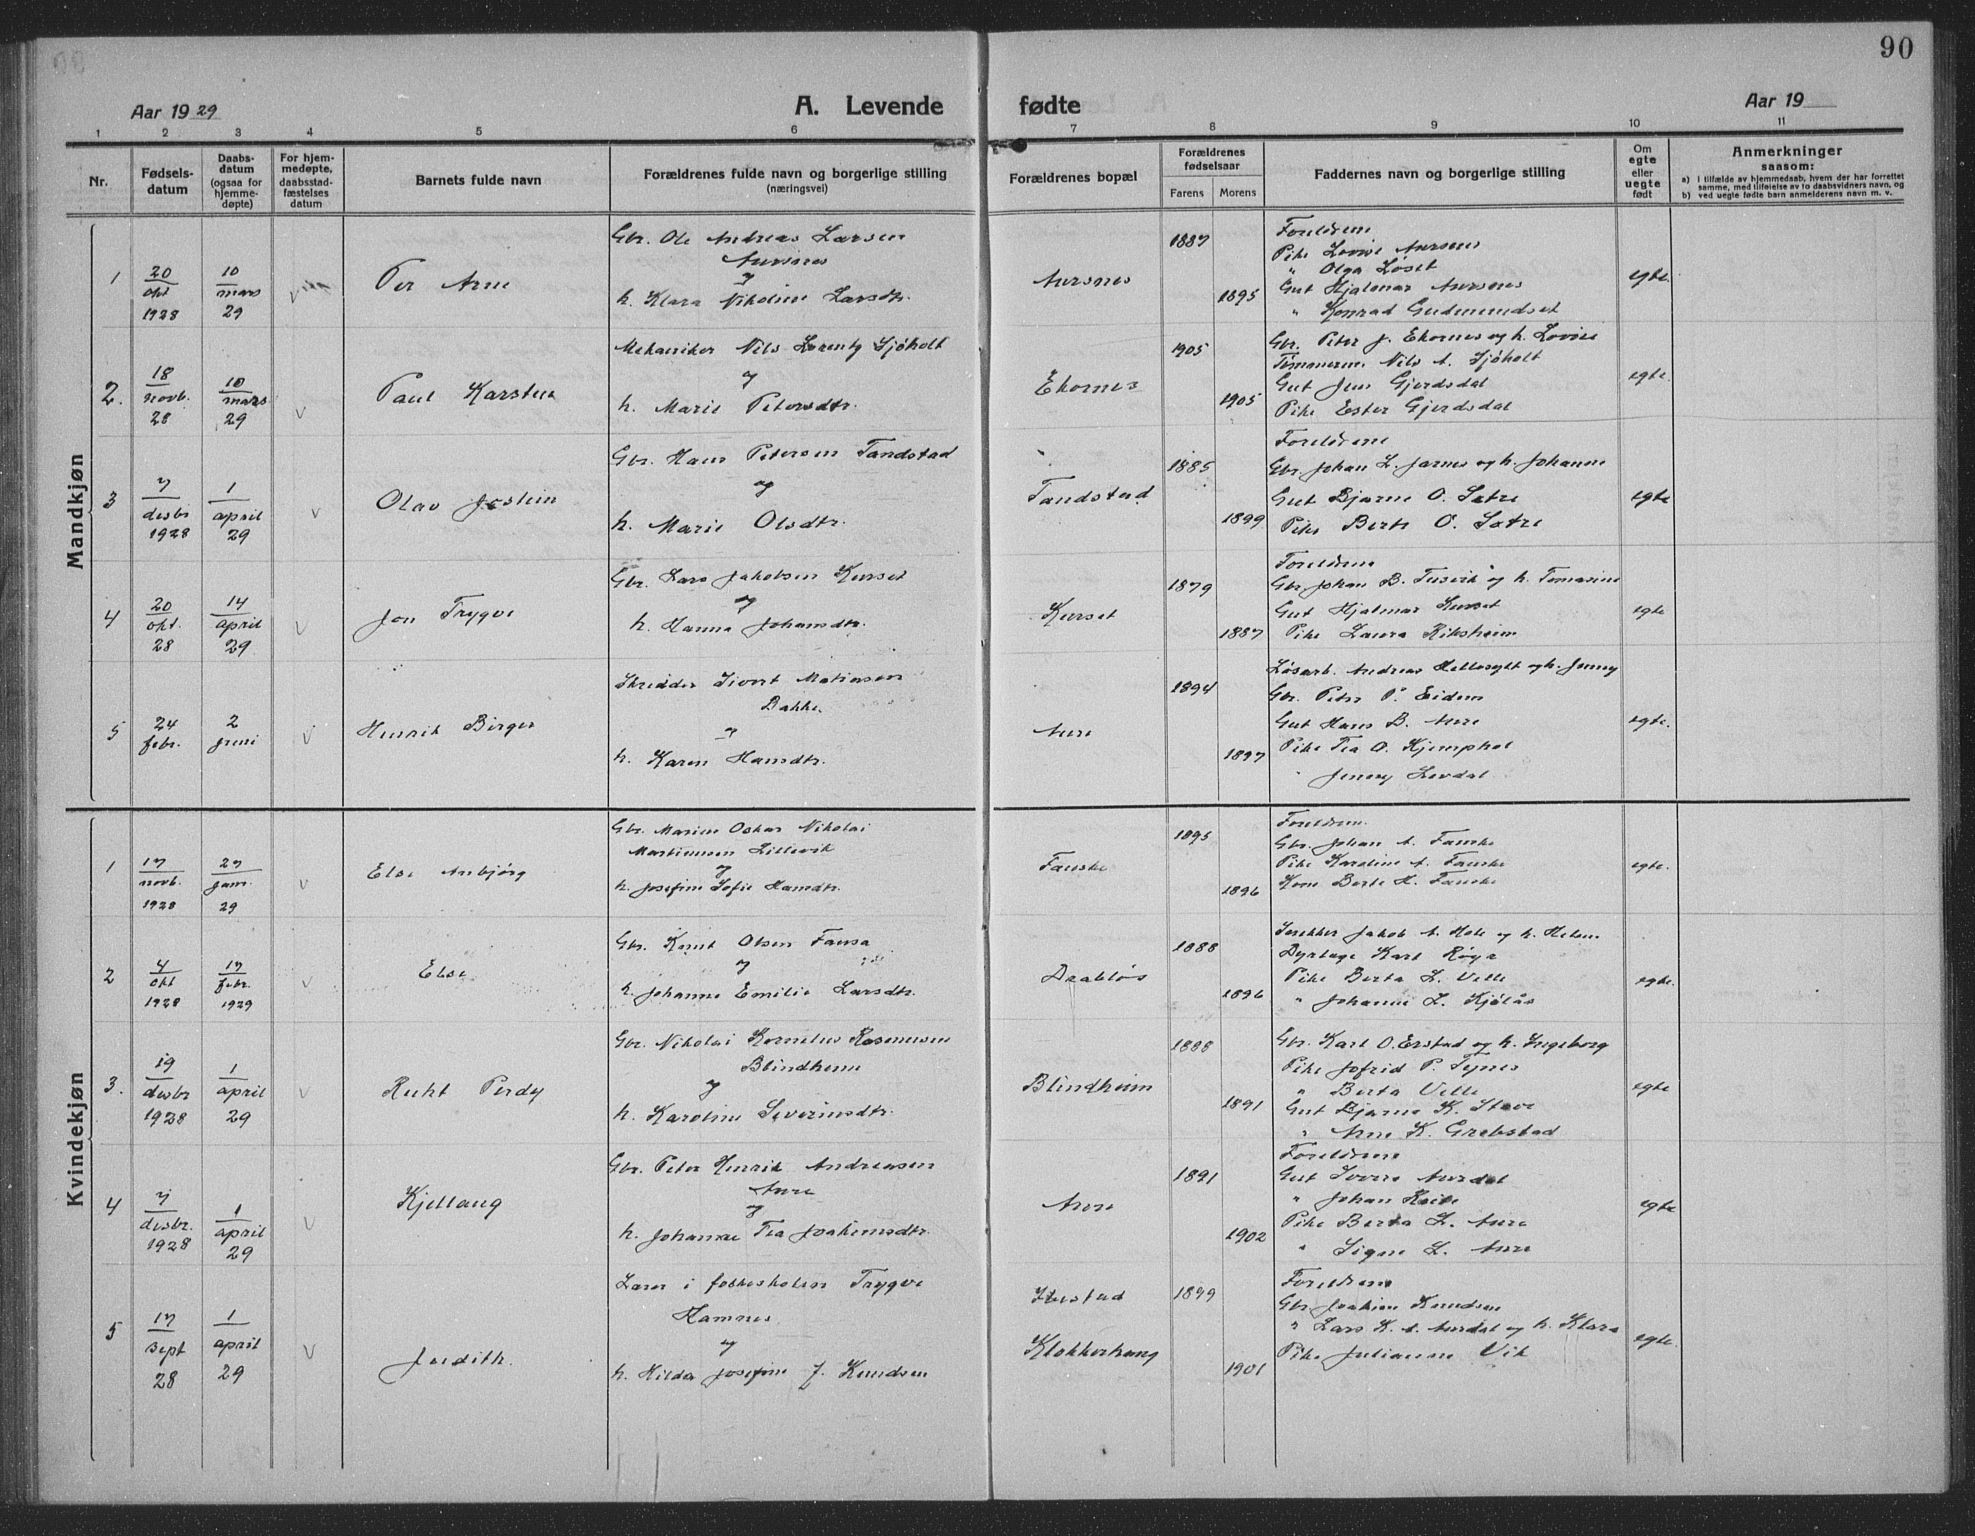 90
Aar 1929
A. Levende
fødte
Aar 19
1 2 3 4 5 6 7 8 9 10 11
Nr.
Fødsels-
datum
Daabs-
datum
(ogsaa for
hjemme-
døpte)
For hjem-
medøpte,
daabsstad-
fæstelses
datum
Barnets fulde navn
Forældrenes fulde navn og borgerlige stilling
(næringsvei)
Forældrenes bopæl
Forældrenes
fødselsaar
Farens Morens
Faddernes navn og borgerlige stilling
Om
egte
eller
uegte
født
Anmerkninger
saasom:
a) I tilfælde av hjemmedaab, hvem der har forrettet
samme, med tilføielse av to daabsvidners navn, og
b) ved uegte fødte barn anmelderens navn m. v.
Mandkjøn
1
20
okt
1928
10
mars
29
v
Per Arne
Gbr. Ole Andreas Larsen
Aursnes
og
h. Klara Nikoline Larsdtr.
Aursnes
1887
1895
Foreldrene
Pike Lovise Aursnes
" Olga Løset
Gut Hjalmar Aursnes
" Konrad Gudmundset
egte.
2.
18
novb.
28
10
mars
29
v
Paul Karsten
Mekaniker Nils Lorentz Sjøholt
og
h. Marie Petersdtr.
Ekornes
1905
1905
Gbr. Peter J. Ekornes og h. Lovise
Tømmerm. Nils A. Sjøholt
Gut Jens Gjerdsdal
Pike Ester Gjerdsdal
egte.
3
7
desbr
1928
1
april
29
v
Olav Jostein
Gbr. Hans Petersen Tandstad
og
h. Marie Olsdtr.
Tandstad
1885
1899
Foreldrene
Gbr. Johan L. Jarnes og h. Johanne
Gut Bjarne O. Sætre
Pike Berte O. Sætre
egte
4
20
okt.
28
14
april
29
v
Jon Trygve
Gbr. Lars Jakobsen Kurset
og
h. Hanna Johansdtr.
Kurset
1879
1887
Foreldrene
Gbr. Johan B. Tusvik og h. Tomasine
Gut Hjalmar Kurset
Pike Laura Riksheim
egte
5
24
febr.
2
juni
v
Henrik Birger
Skredder Sivert Matiassen
Bakke
og
h. Karen Hansdtr.
Aure
1894
1897
Løsarb. Andreas Hellesylt og h. Jenny
Gbr. Peter P. Eidem
Gut Hans B. Aure
Pike Tea O. Kjemphol
" Jenny Løvdal
egte.
Kvindekjøn
1
17
novb.
1928
27
jan.
29
v
Else Asbjørg
Gbr. Marius Oskar Nikolai
Martinusen Lillevik
og
h. Josefine Sofie Hansdtr.
Fauske
1895
1896
Foreldrene
Gbr. Johan A. Fauske
Pike Karoline A. Fauske
Kone Berte H. Fauske
egte.
2
4
okt
1928
17
febr.
1929
v
Else
Gbr. Knut Olsen Fausa
og
h. Johanne Emilie Larsdtr.
Drabløs
1888
1896
Snekker Jakob A. Hole og h. Helene
Dyrlæge Karl Røyr
Pike Berta L. Velle
" Johanne L. Kjølås
egte.
3.
19
desbr
1928
1
april
29
v
Ruht Perdy
Gbr. Nikolai Kornelius Rasmussen
Blindheim
og
h. Karoline Severinsdtr.
Blindheim
1888
1891
Gbr. Karl O. Erstad og h. Ingeborg
Pike Jofrid P. Tynes
" Berta Velle
Gut Bjarne K. Stave
" Arne K. Grebstad
egte
4
7
desbr.
1928
1
april
29
v
Kjellaug
Gbr. Peter Henrik Andreasen
Aure
og
h. Johanne Tea Joakimsdtr.
Aure
1891
1902
Foreldrene
Gut Sverre Aurdal
" Johan
Pike Berta L. Aure
" Signe L. Aure
egte
5
17
sept
28
1
april
29
v
Judith.
Lærer i folkeskolen Trygve
Hamnes
og
h. Hilda Josefine J. Knudsen
Ikestad
Klokkerhaug
1899
1901
Foreldrene
Gbr. Joakim Knudsen
" Lars K. A. Aurdal og h. Klara
Pike Julianne Vik
egte.